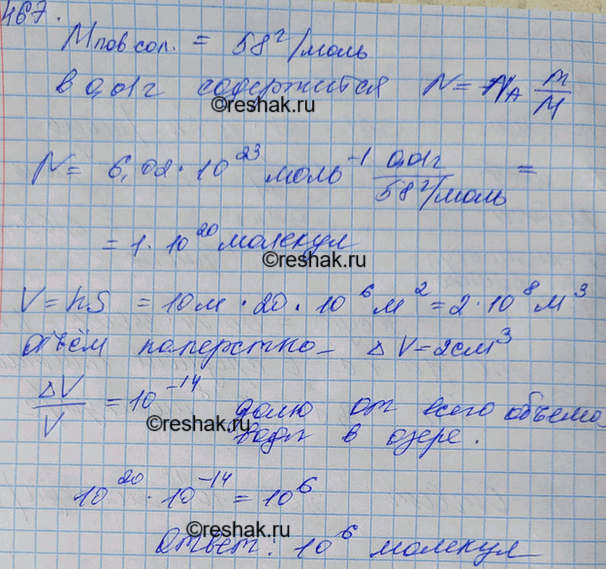 467.
M пов сол. = 58 г/моль
в 0,01г содержится N = N_A m/M
©reshak.ru
N = 6,02 · 10^23 моль^-1 0,01г / 58 г/моль =
= 1 · 10^20 молекул
©reshak.ru
V = hS = 10м · 20 · 10^6 м^2 = 2 · 10^8 м^3
объём наперстка – ΔV = 2см^3
ΔV/V = 10^-14 долю от всего объема
©reshak.ru
воды в озере.
10^20 · 10^-14 = 10^6
©reshak.ru
Ответ: 10^6 молекул